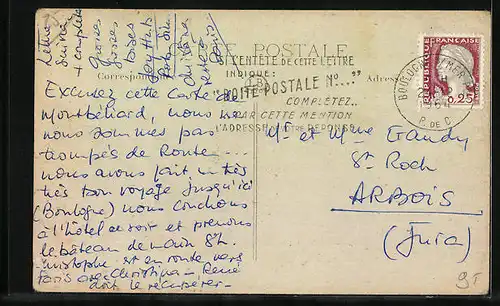 CARTE POSTALE
Correspon
Adresse
SI L'ENTÊTE DE CETTE LETTRE
INDIQUE :
"BOITE POSTALE N°....."
COMPLETEZ..
PAR CETTE MENTION
L'ADRESSE DE VOTRE REPONSE
BOULOGNE S MER
P. DE C.
REPUBLIQUE FRANÇAISE
0,25
Lettre
suivra
+ complète
Grosses
grosses
bises
Excusez cette carte de
Montbéliard, nous ne
nous sommes pas
trompés de Route.....
nous avons fait un très
très bon voyage jusqu'ici
(Boulogne) nous couchons
à l'hôtel ce soir et prenons
le bâteau demain 8h.
Christophe est en route vers
Paris avec Christina - René
doit le récupérer -
Mr et Mme Gandy
St Roch
ARBOIS
(Jura)